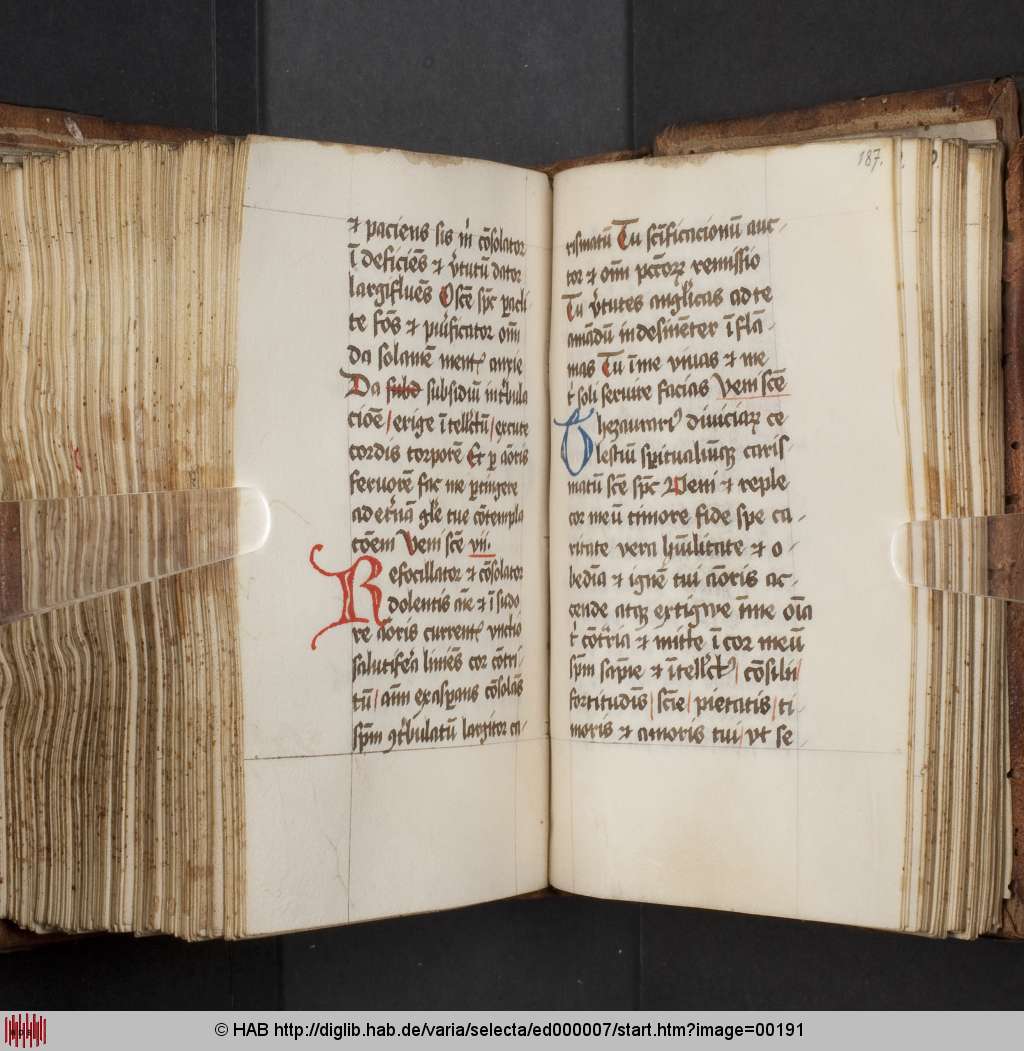 ⁊ paciens sis m̄ cōsolator
ī deficiēs ⁊ v̓tutū dator
largifluēs O scē spc̄ pacli
te fōs ⁊ purificator om̄i
da solamē ment anxie
Da subd subsidiū in tbula
cioē / erige ītellctū / excute
cordis torporē Et p aōris
feruorē fac me ptingere
ad etn̄ā glē tue cōtempla
cōem Veni scē vij.
Refocillator ⁊ cōsolator
dolentis aīe ⁊ ī sudo
re aōris current vnctio
salutifera liniēs cor cōtri-
tū / aīm exaspans cōsolās
spm̄ 9tbulatū largitor ca-
187.
rismatū Tu scīficacionū auc-
tor ⁊ om̄ pctōrꝝ remissio
Tu v̓tutes anglicas ad te
amādū indesinēter īflā-
mas Tu ī me viuas ⁊ me
t̓ soli seruire facias Veni scē
Thezaurari9 diuiciarꝝ ce
lestiū spiritualiūqꝫ caris-
matū scē spc̄ Veni ⁊ reple
cor meū timore fide spe ca-
ritate vera hūilitate ⁊ o-
bediā ⁊ ignē tui aōris ac-
cende atqꝫ extigwe ī me oīa
t̓ cōtria ⁊ mitte ī cor meū
spm̄ sapīe ⁊ ītellct9 / cōsilii /
fortitudīs / scīe / pietatis / ti-
moris ⁊ amoris tui / vt se
© HAB http://diglib.hab.de/varia/selecta/ed000007/start.htm?image=00191